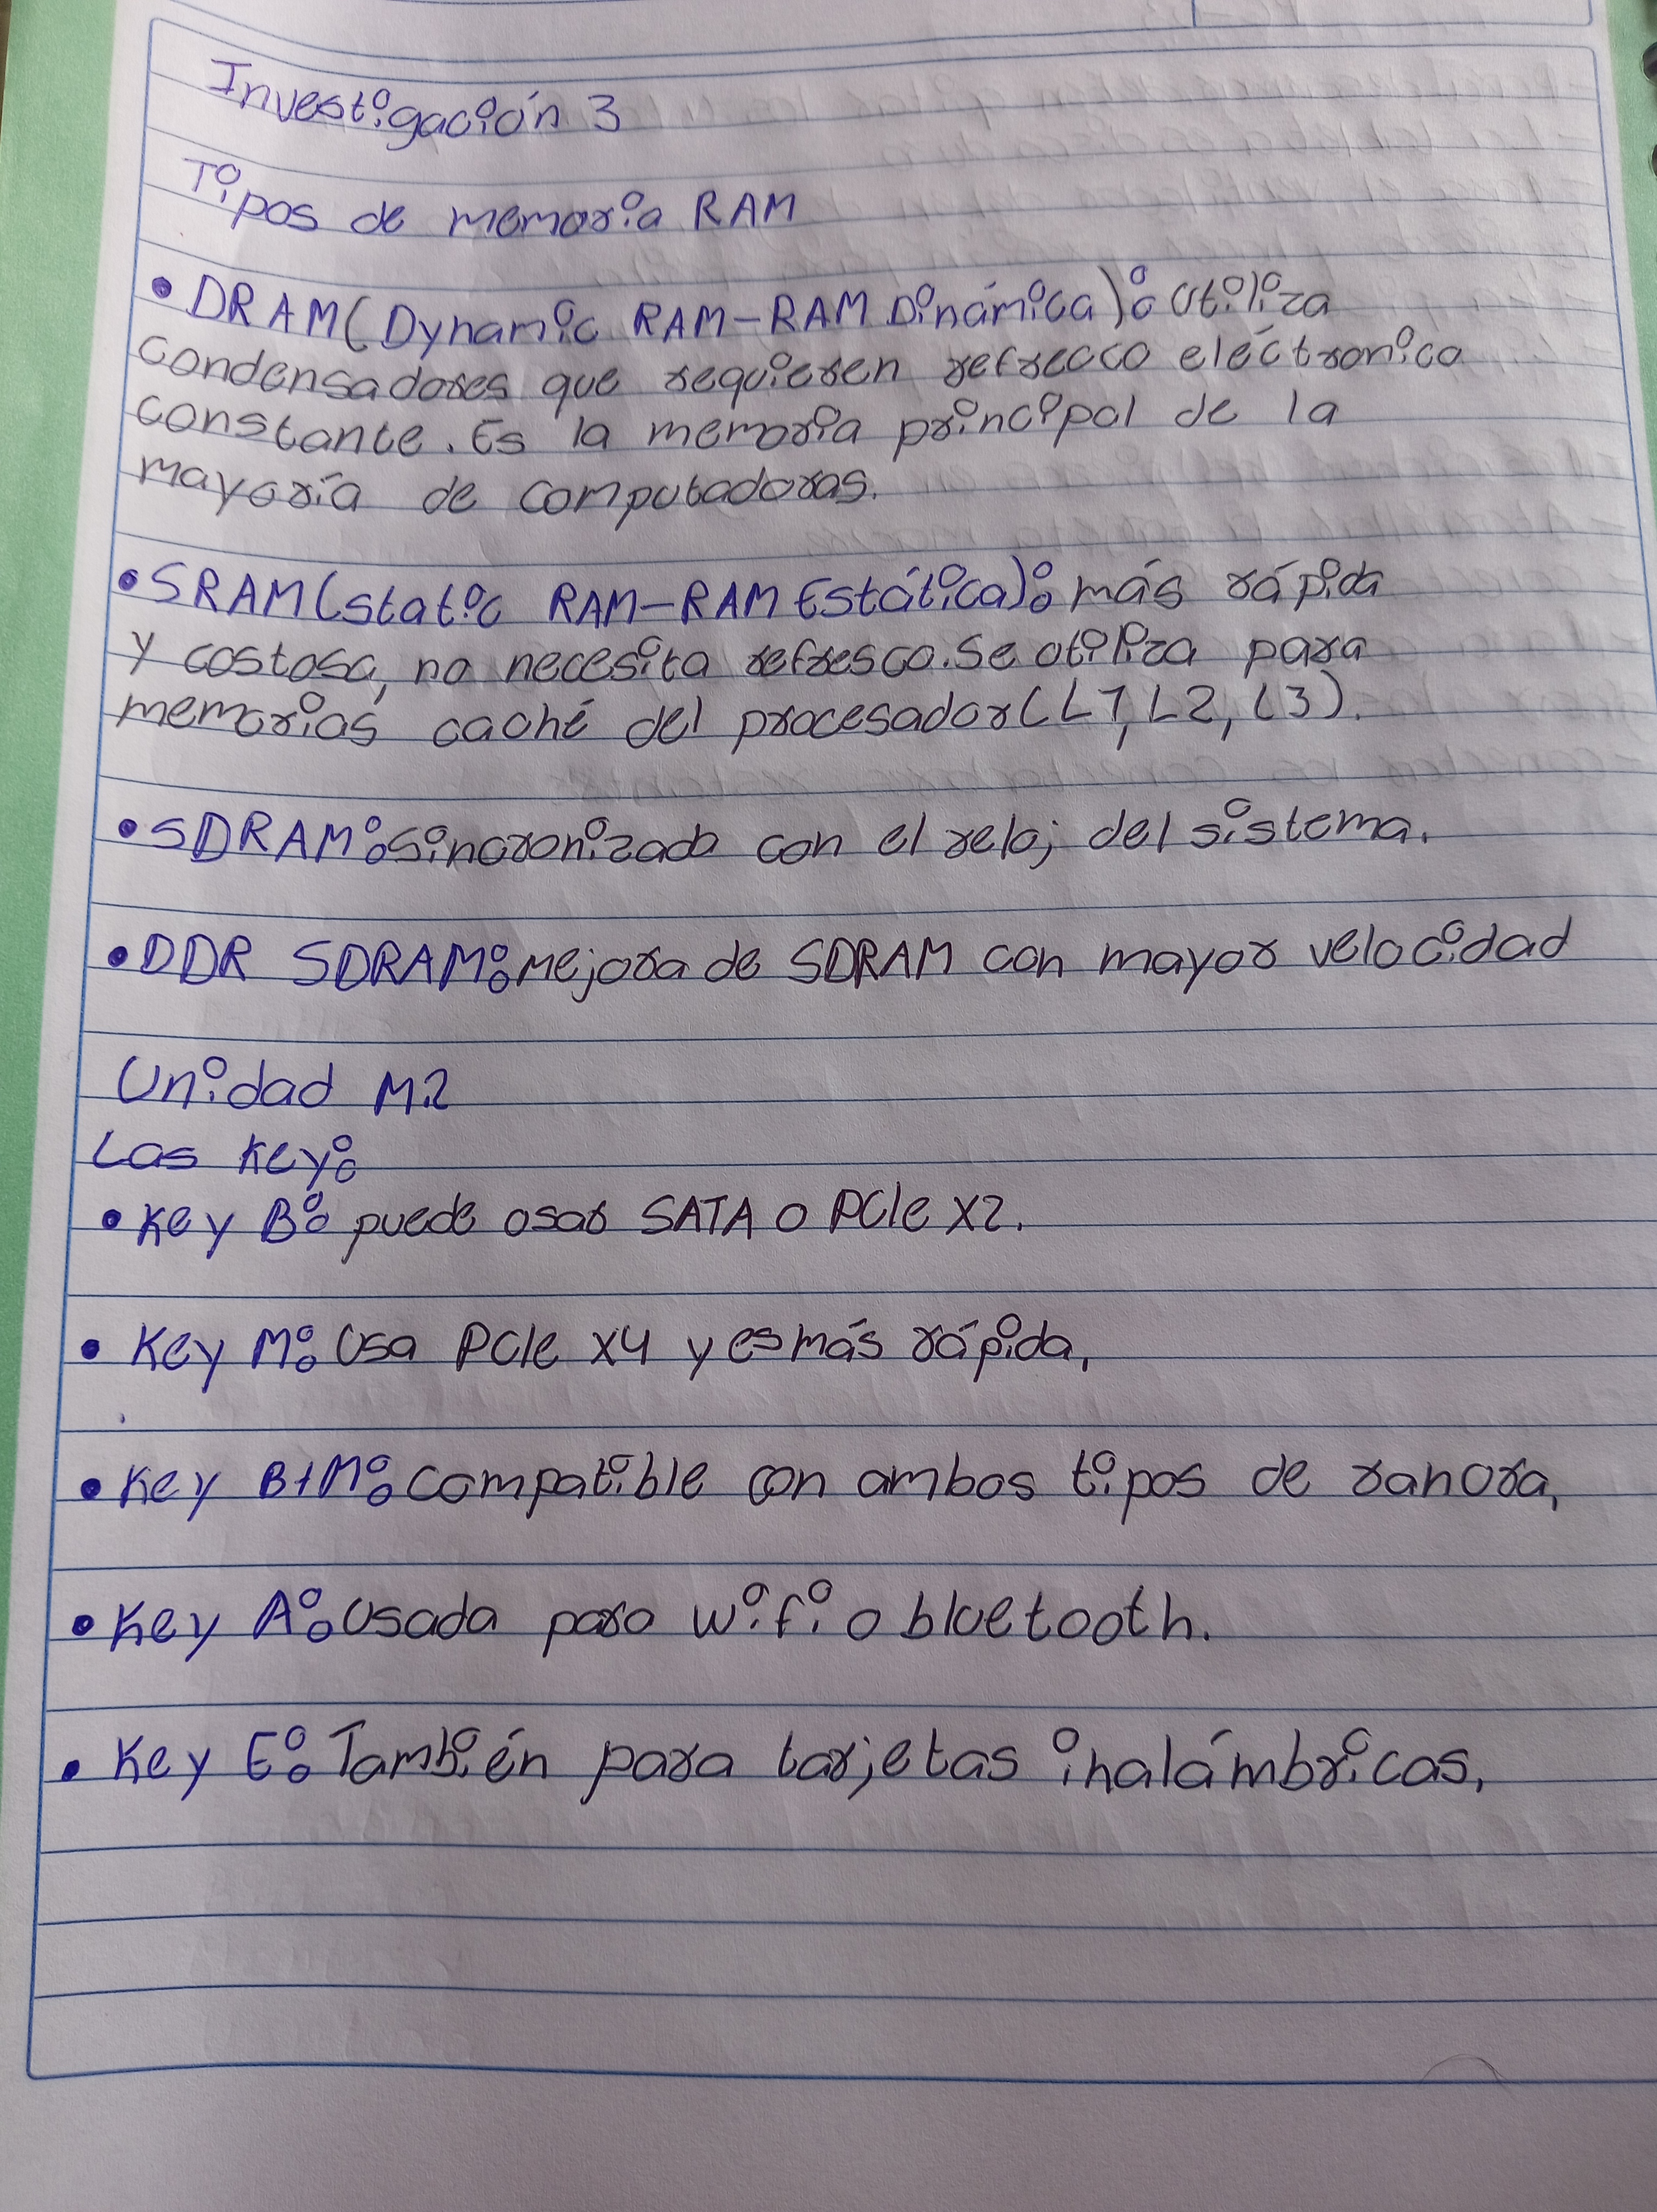 Investigación 3
Tipos de memoria RAM
• DRAM (Dynamic RAM-RAM Dinámica): Utiliza
condensadores que requieren refresco eléctronico
constante. Es la memoria principal de la
mayoría de computadoras.
• SRAM (static RAM-RAM Estática): más rápida
y costosa, no necesita refresco. Se utiliza para
memorias caché del procesador (L1, L2, L3).
• SDRAM: Sincronizada con el reloj del sistema.
• DDR SDRAM: Mejora de SDRAM con mayor velocidad
Unidad M.2
Las Key:
• Key B: puede usar SATA o PCIe X2.
• Key M: Usa PCIe X4 y es más rápida.
• Key B+M: Compatible con ambos tipos de ranura.
• Key A: Usada para wifi o bluetooth.
• Key E: También para tarjetas inalámbricas.